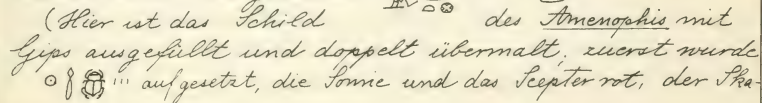 (Hier ist das Schild des Amenophis mit
Gips ausgefüllt und doppelt übermalt; zuerst wurde
aufgesetzt, die Sonne und das Scepter rot, der Ska-